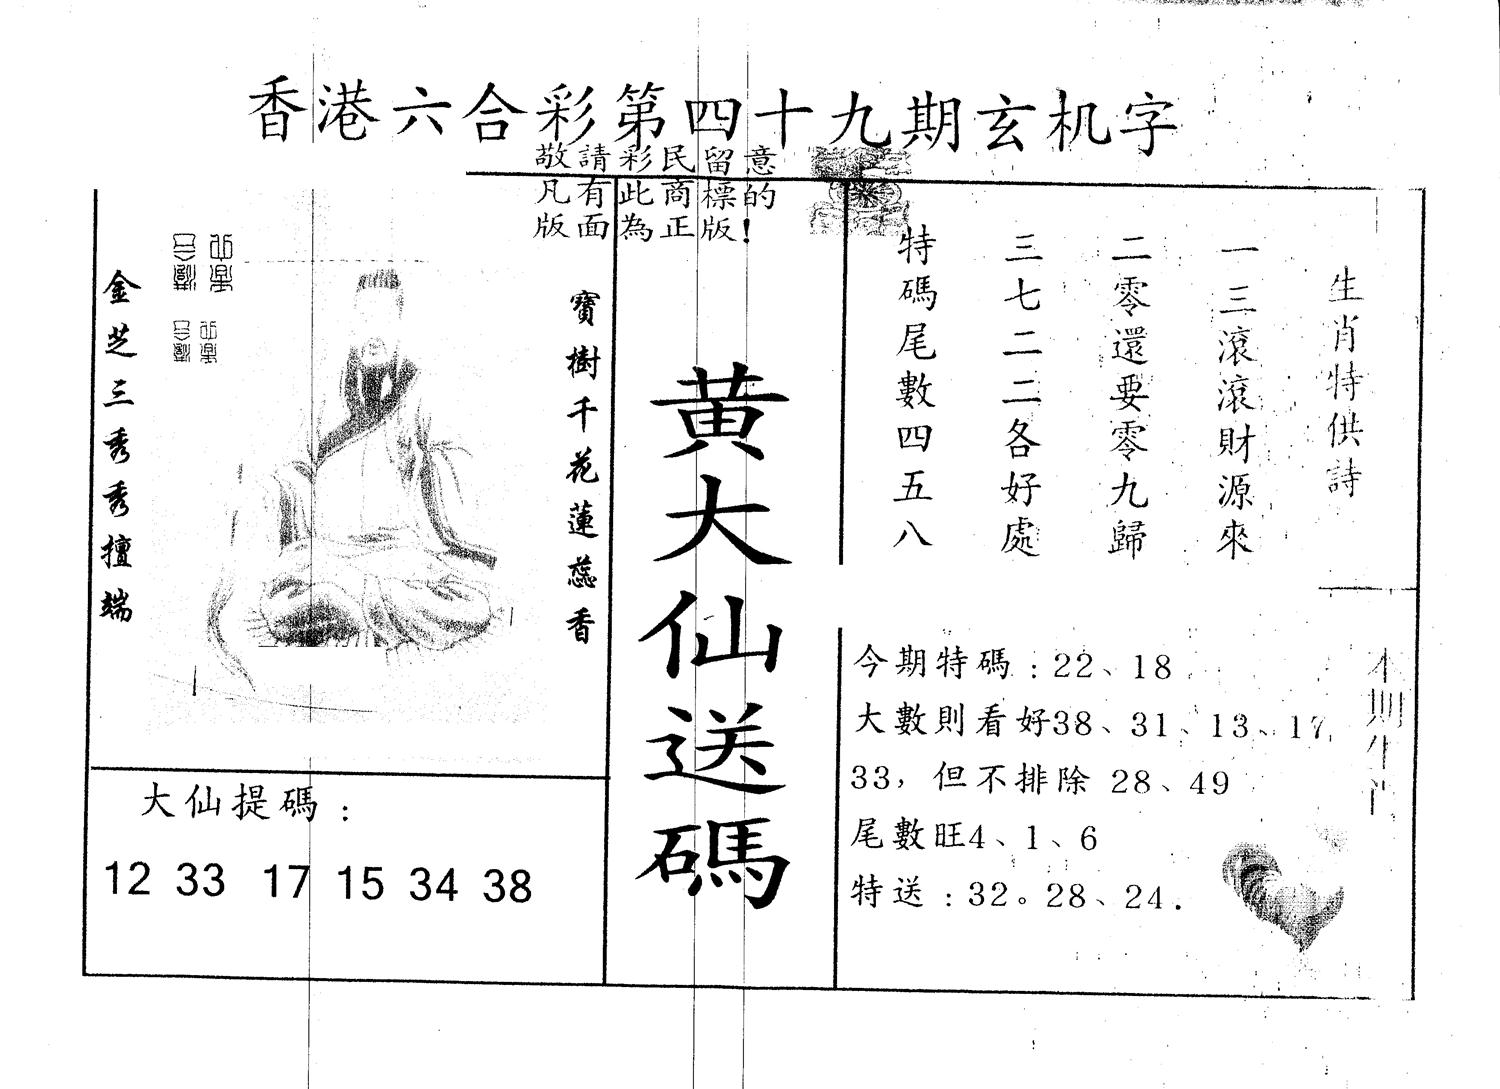 香港六合彩第四十九期玄机字
敬請彩民留意
凡有此商標的
版面為正版！
生肖特供詩
一三滾滾財源來
二零還要零九歸
三七二二各好處
特碼尾數四五八
寶樹千花蓮蕊香
金芝三秀秀擅端
黃大仙送碼
今期特碼：22、18
大數則看好38、31、13、17
33，但不排除 28、49
尾數旺4、1、6
特送：32。28、24.
大仙提碼：
12 33 17 15 34 38